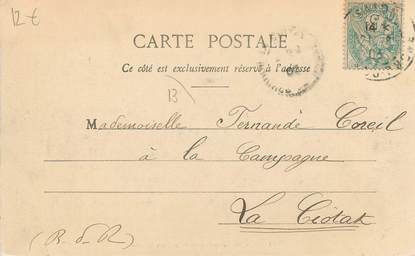 12 €
CARTE POSTALE
Ce côté est exclusivement réservé à l'adresse
13
Mademoiselle Fernande Coreil
à la Campagne
La Ciotat
(B. d. R)